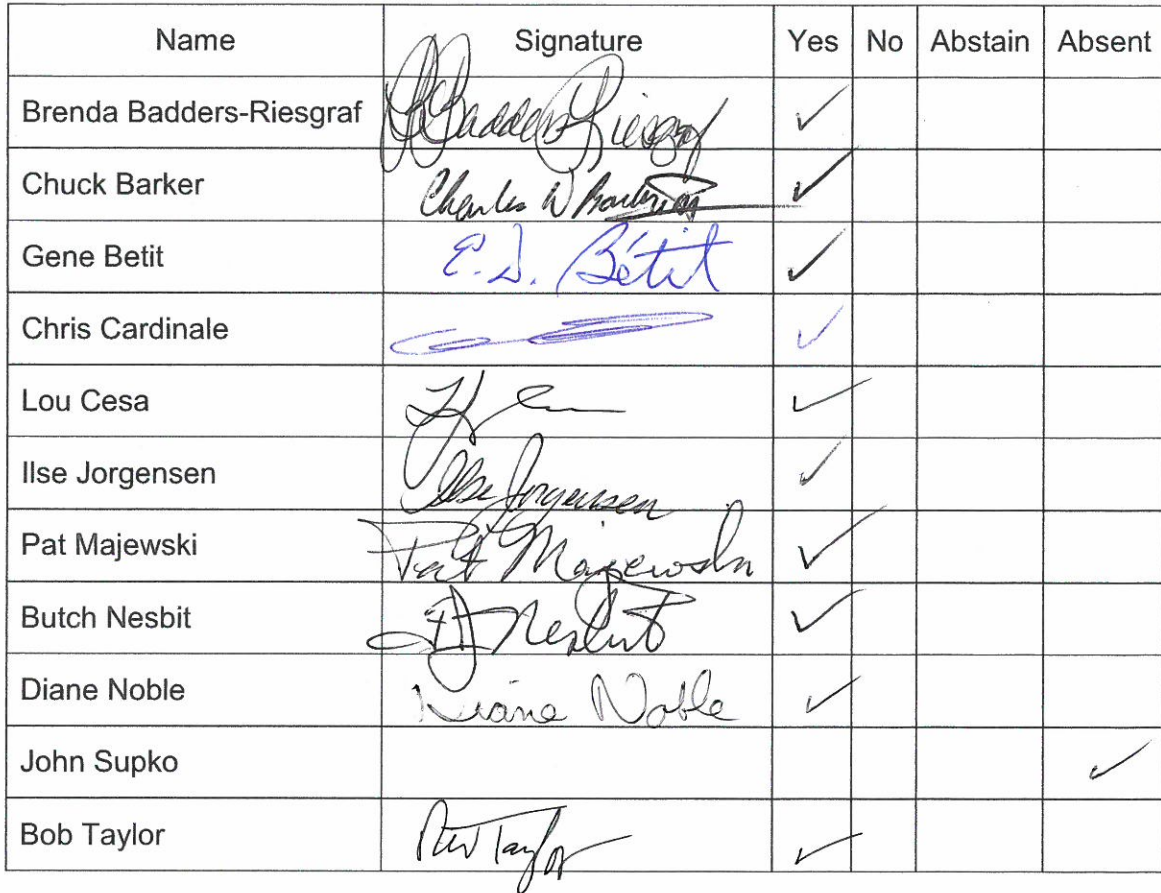 Name Signature Yes No Abstain Absent
Brenda Badders-Riesgraf BBadders-Riesgraf ✓
Chuck Barker Charles W ✓
Gene Betit E.D. Bétit ✓
Chris Cardinale ✓
Lou Cesa ✓
Ilse Jorgensen Ilse Jorgensen ✓
Pat Majewski Pat Majewski ✓
Butch Nesbit Nesbit ✓
Diane Noble Diane Noble ✓
John Supko ✓
Bob Taylor RW Taylor ✓